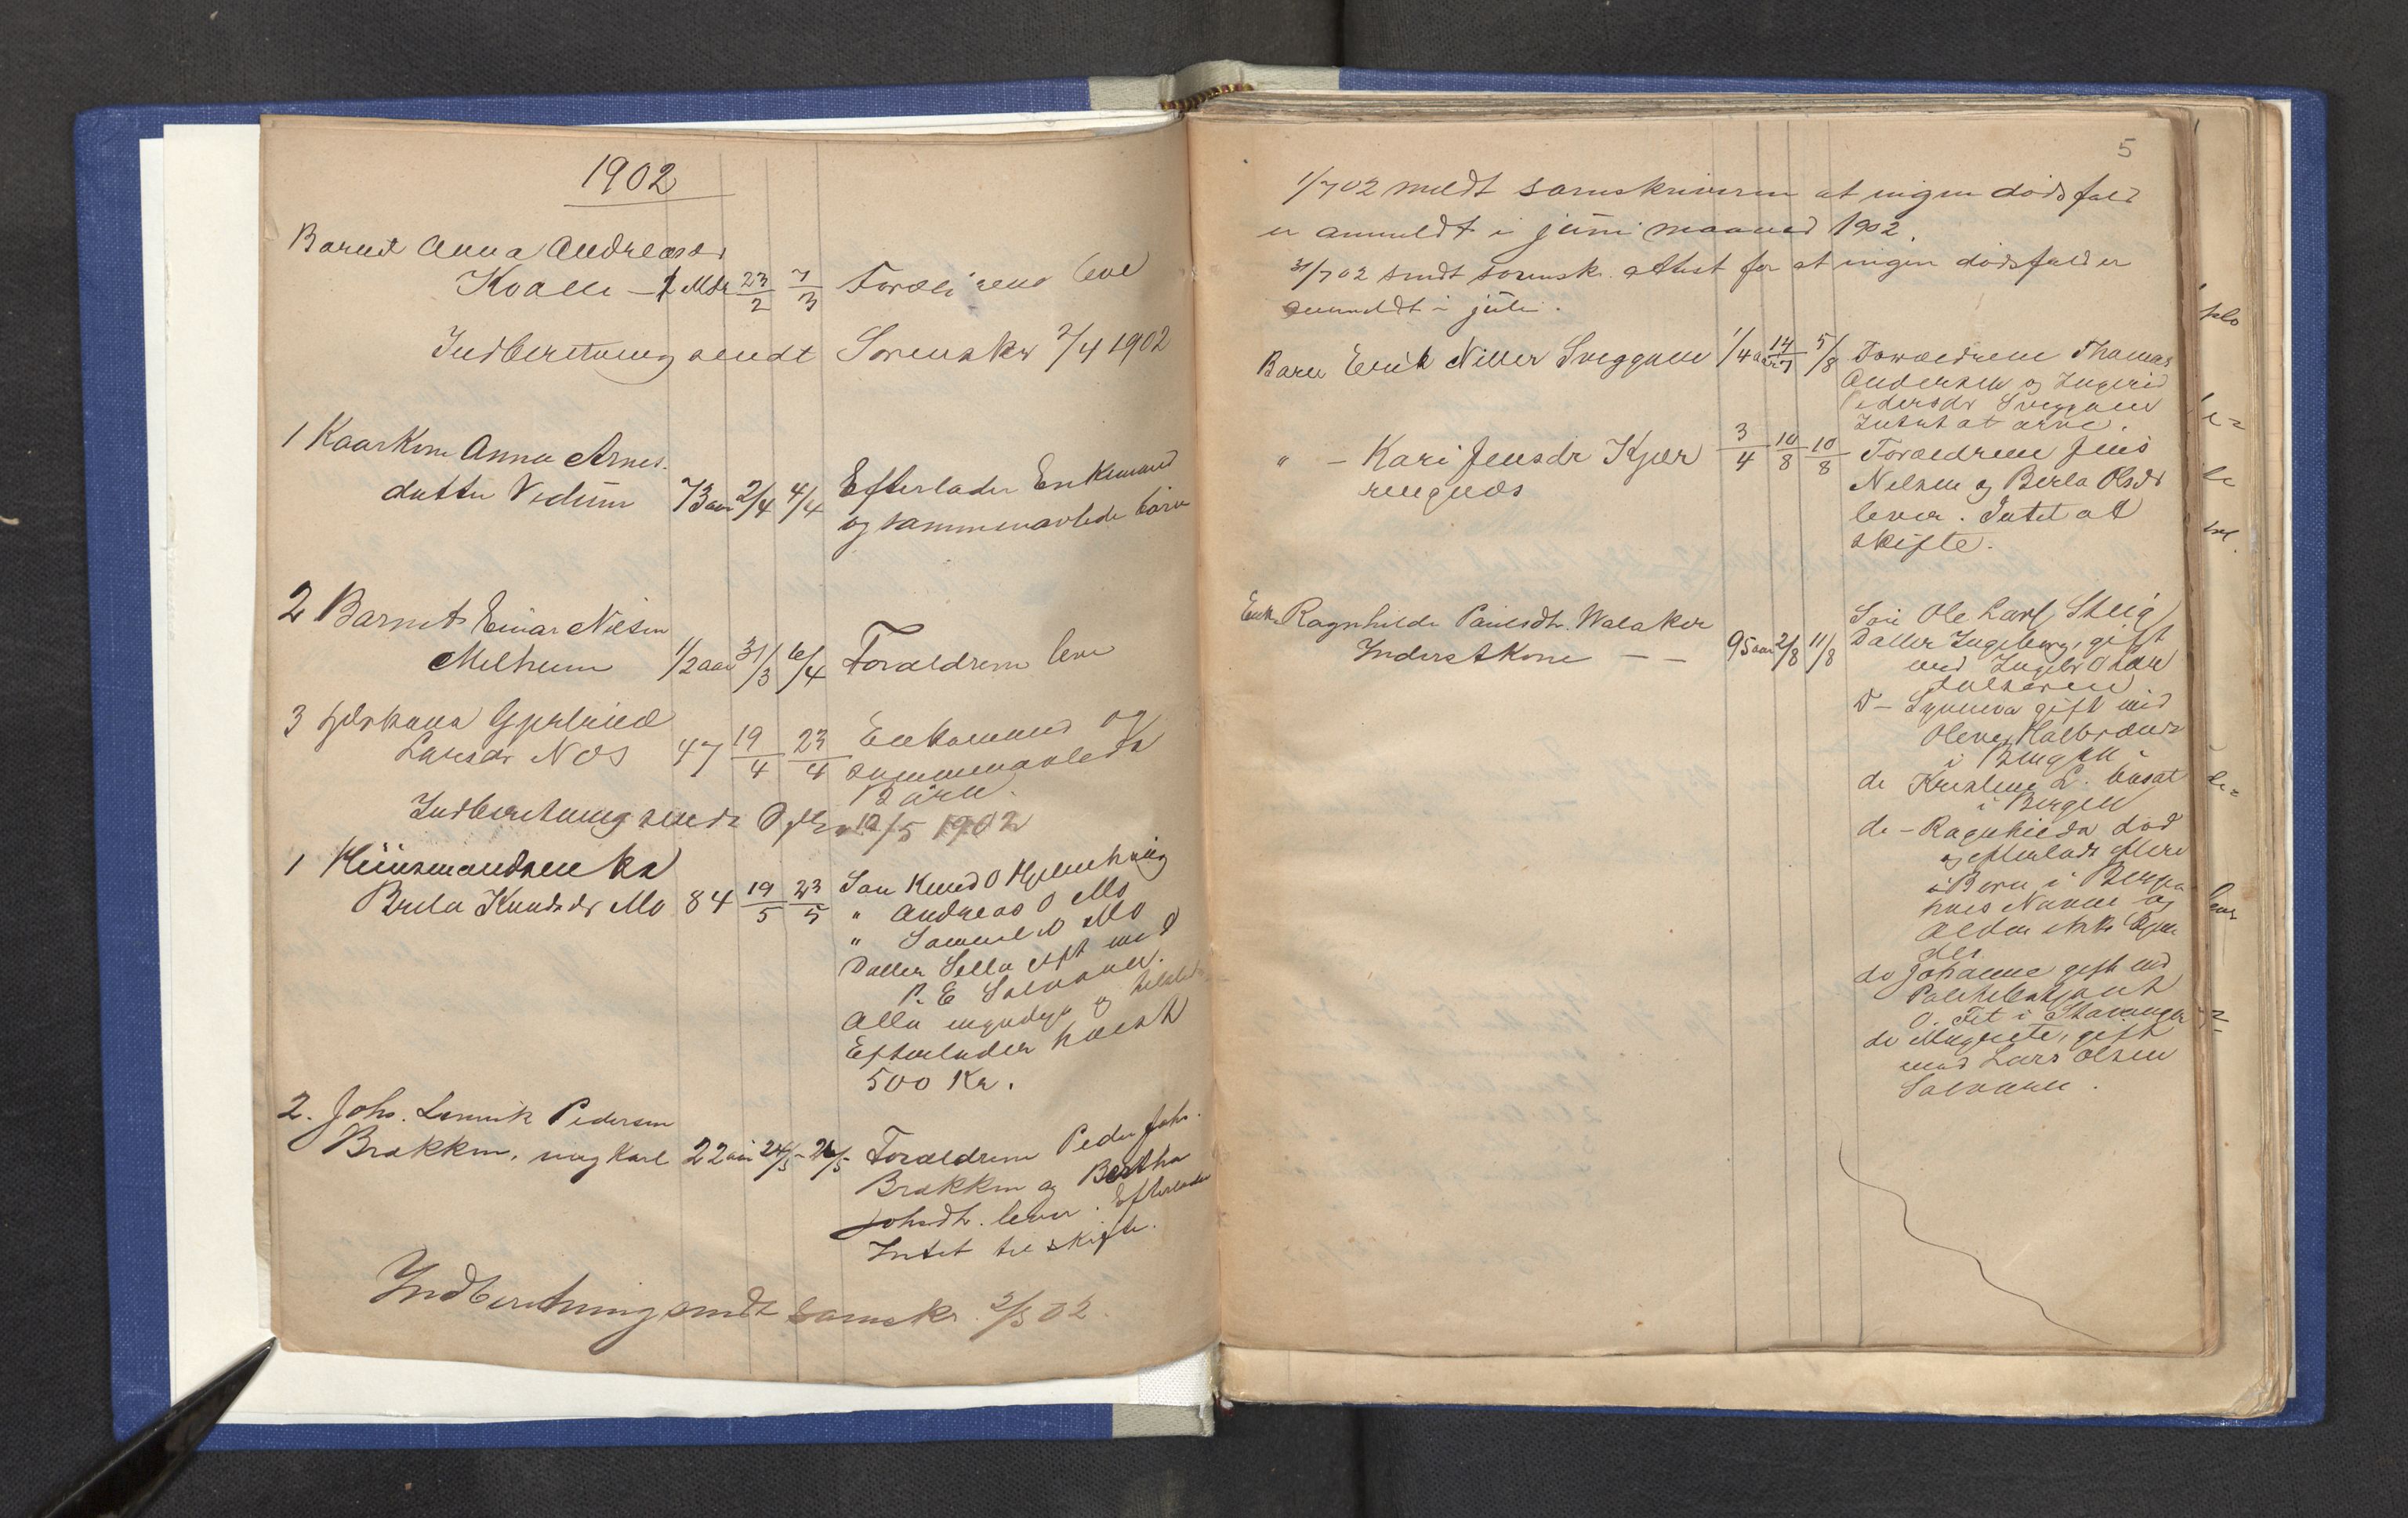 1902
Barnet Anna Andreasdr
Kvalle - 1 Mdr 23/2 7/3 Forældrene leve
Indberetning sendt Sorenskr 2/4 1902
1 Kaarkone Anna Arnes-
datter Vedum 73 aar 2/4 4/4 Efterlader Enkemand
og sammenavlede börn
2 Barnet Einar Nilsen
Melheim 1/2 aar 31/3 6/4 Foraldrene leve
3 Gjertrud
Larsdr Næs 47 19/4 23/4 Enkemand og
sammenavlede
Börn.
Indberetning sendt 12/5 1902
1 Huusmandsenke
Brita Knudsdr Mo 84 19/5 23/5 Søn Knud O
" Andreas O Mo
" Samuel O Mo
Datter Sella gift med
P. E Solvorn.
Alle myndige og
Efterlader höist
500 Kr.
2. Johs. Henrik Pedersen
Brækken, ung Karl 22 aar 24/5 26/5 Foraldrene Peder Johs.
Brækken og Bertha
Johsdtr. lever. Efterlader
Intet til skifte.
Indberetning sendt sorenskr. 2/5 02.
5
1/7 02 meldt sorenskriveren at ingen dødsfald
er anmeldt i juni maaned 1902.
31/7 02 sendt sorensk. attest for at ingen dødsfald er
anmeldt i juli.
Barn Erik Sveggum 1/4 aar 14/7 5/8 Forældrene Thomas
Andersen og Ingerid
Pedersdr Sveggum
Intet at arve.
" - Kari Jensdr Kjær
ringnæs 3/4 10/8 Forældrene Jens
Nilsen og Berta Olsdr
lever. Intet at
skifte.
Enke Ragnhilda Paulsdtr. Walaker
Inderstkone - - 95 aar 2/8 11/8 Søn Ole Larss Steig
Datter Ingeborg, gift
med Ingebr O
D - Synneva gift med
i Bergen
do Kristine L. bosat
i Bergen
do - Ragnhilda död
og efterlader flere
Børn i Bergen
hvis Navne og
Alder ikke kjen
des
do Johanne gift med
Politibetjent
O. Fet i Stavanger
do Magrete, gift
med Lars Olsen
Solvorn.